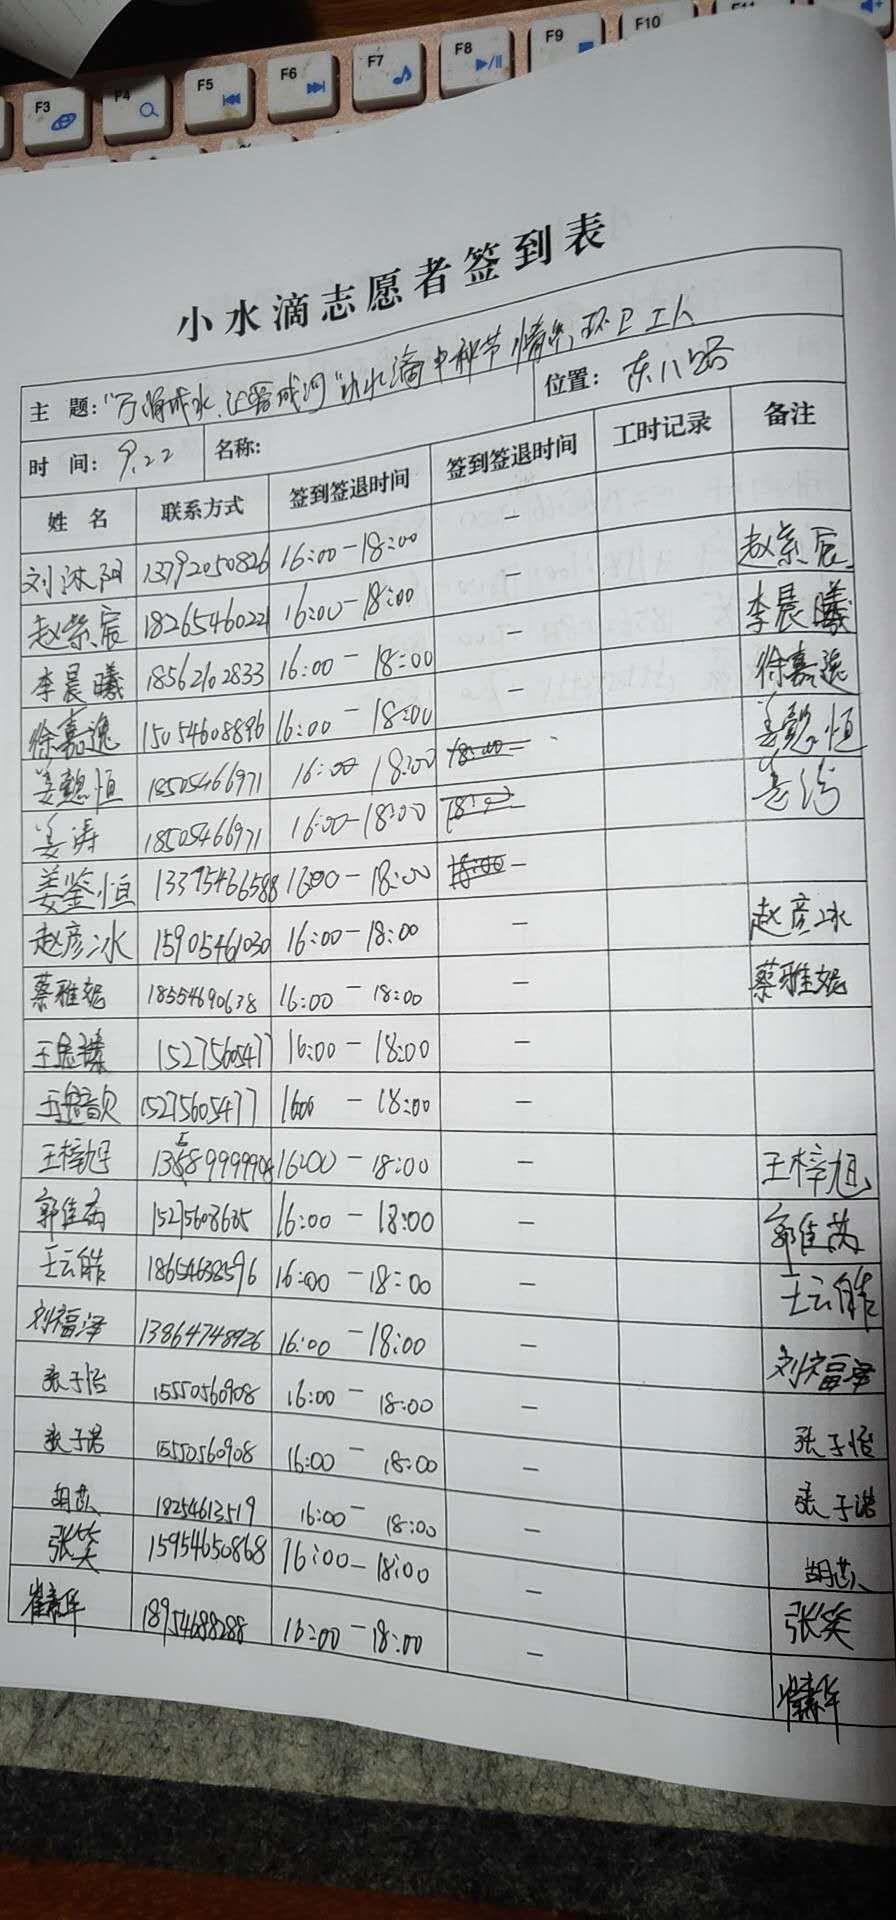 F3 F4 F5 F6 F7 F8 F9 F10 F11
小水滴志愿者签到表
主 题:"万涓成水,汇聚成河"小水滴中秋节情牵环卫工人
时 间: 9.22 名称: 位置: 东八路
姓 名 联系方式 签到签退时间 签到签退时间 工时记录 备注
刘沐阳 13792050826 16:00-18:00 - 赵紫宸
赵紫宸 18265460221 16:00-18:00 - 李晨曦
李晨曦 18562102833 16:00-18:00 - 徐嘉逸
徐嘉逸 15054608896 16:00-18:00 姜懿恒
姜懿恒 18505466971 16:00 18:00 18:00- 姜涛
姜涛 18505466971 16:00-18:00
姜鉴恒 13375466588 16:00-18:00 18:00-
赵彦冰 15905461030 16:00-18:00 - 赵彦冰
蔡雅妮 18554690638 16:00-18:00 - 蔡雅妮
王 15275605477 16:00-18:00 -
王 15275605477 1600 -18:00 -
王梓旭 16:00-18:00 - 王梓旭
郭佳 16:00-18:00 - 郭佳
王云皓 18654638596 16:00-18:00 - 王云皓
刘福泽 13864748926 16:00-18:00 - 刘福泽
张子怡 15550560908 16:00-18:00 - 张子怡
张子诺 15550560908 16:00-18:00 - 张子诺
胡 18254613519 16:00-18:00 - 胡
张笑 15954650868 16:00-18:00 - 张笑
崔 18954688288 16:00-18:00 -